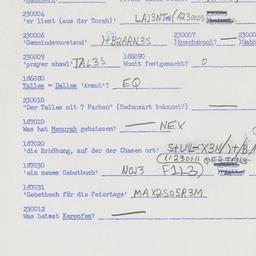 230004
'er liest (aus der Torah)' LAJ3NT= (A230005
230006 230007 2300
'Gemeindevorstand' )+B2ARN3S )Roschekool? — )Gabb
230009 186090
'prayer shawl' TAL3S Womit festgemacht? O
186080
Talles = Dalles 'Armut'? EQ
230010
"Der Talles mit 7 Farben" (Redensart bekannt?) —
187010
Was hat Memorah geheissen? — NEX
187020
'die Erhöhung, auf der der Chasen ort' S+UL-X3N/)+B/
(1123001
187030
'ein neues Gebetbuch' NOU3 F1L3)
187031
'Gebetbuch für die Feiertage' MAX2SO5R3M
230012
Was heisst Keronfes? —